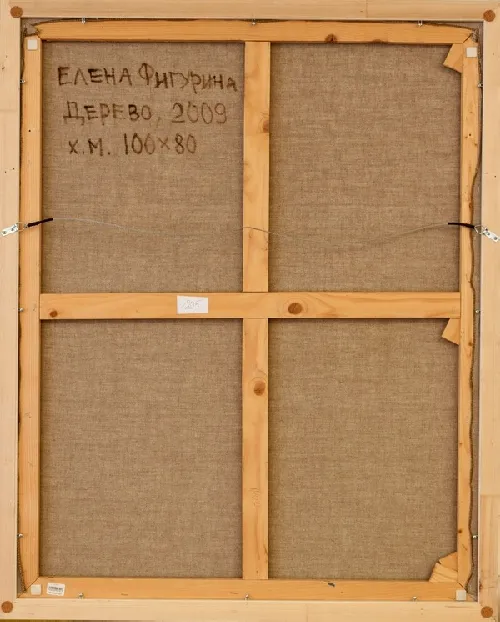 ЕЛЕНА ФИГУРИНА
ДЕРЕВО, 2009
Х.М. 100×80